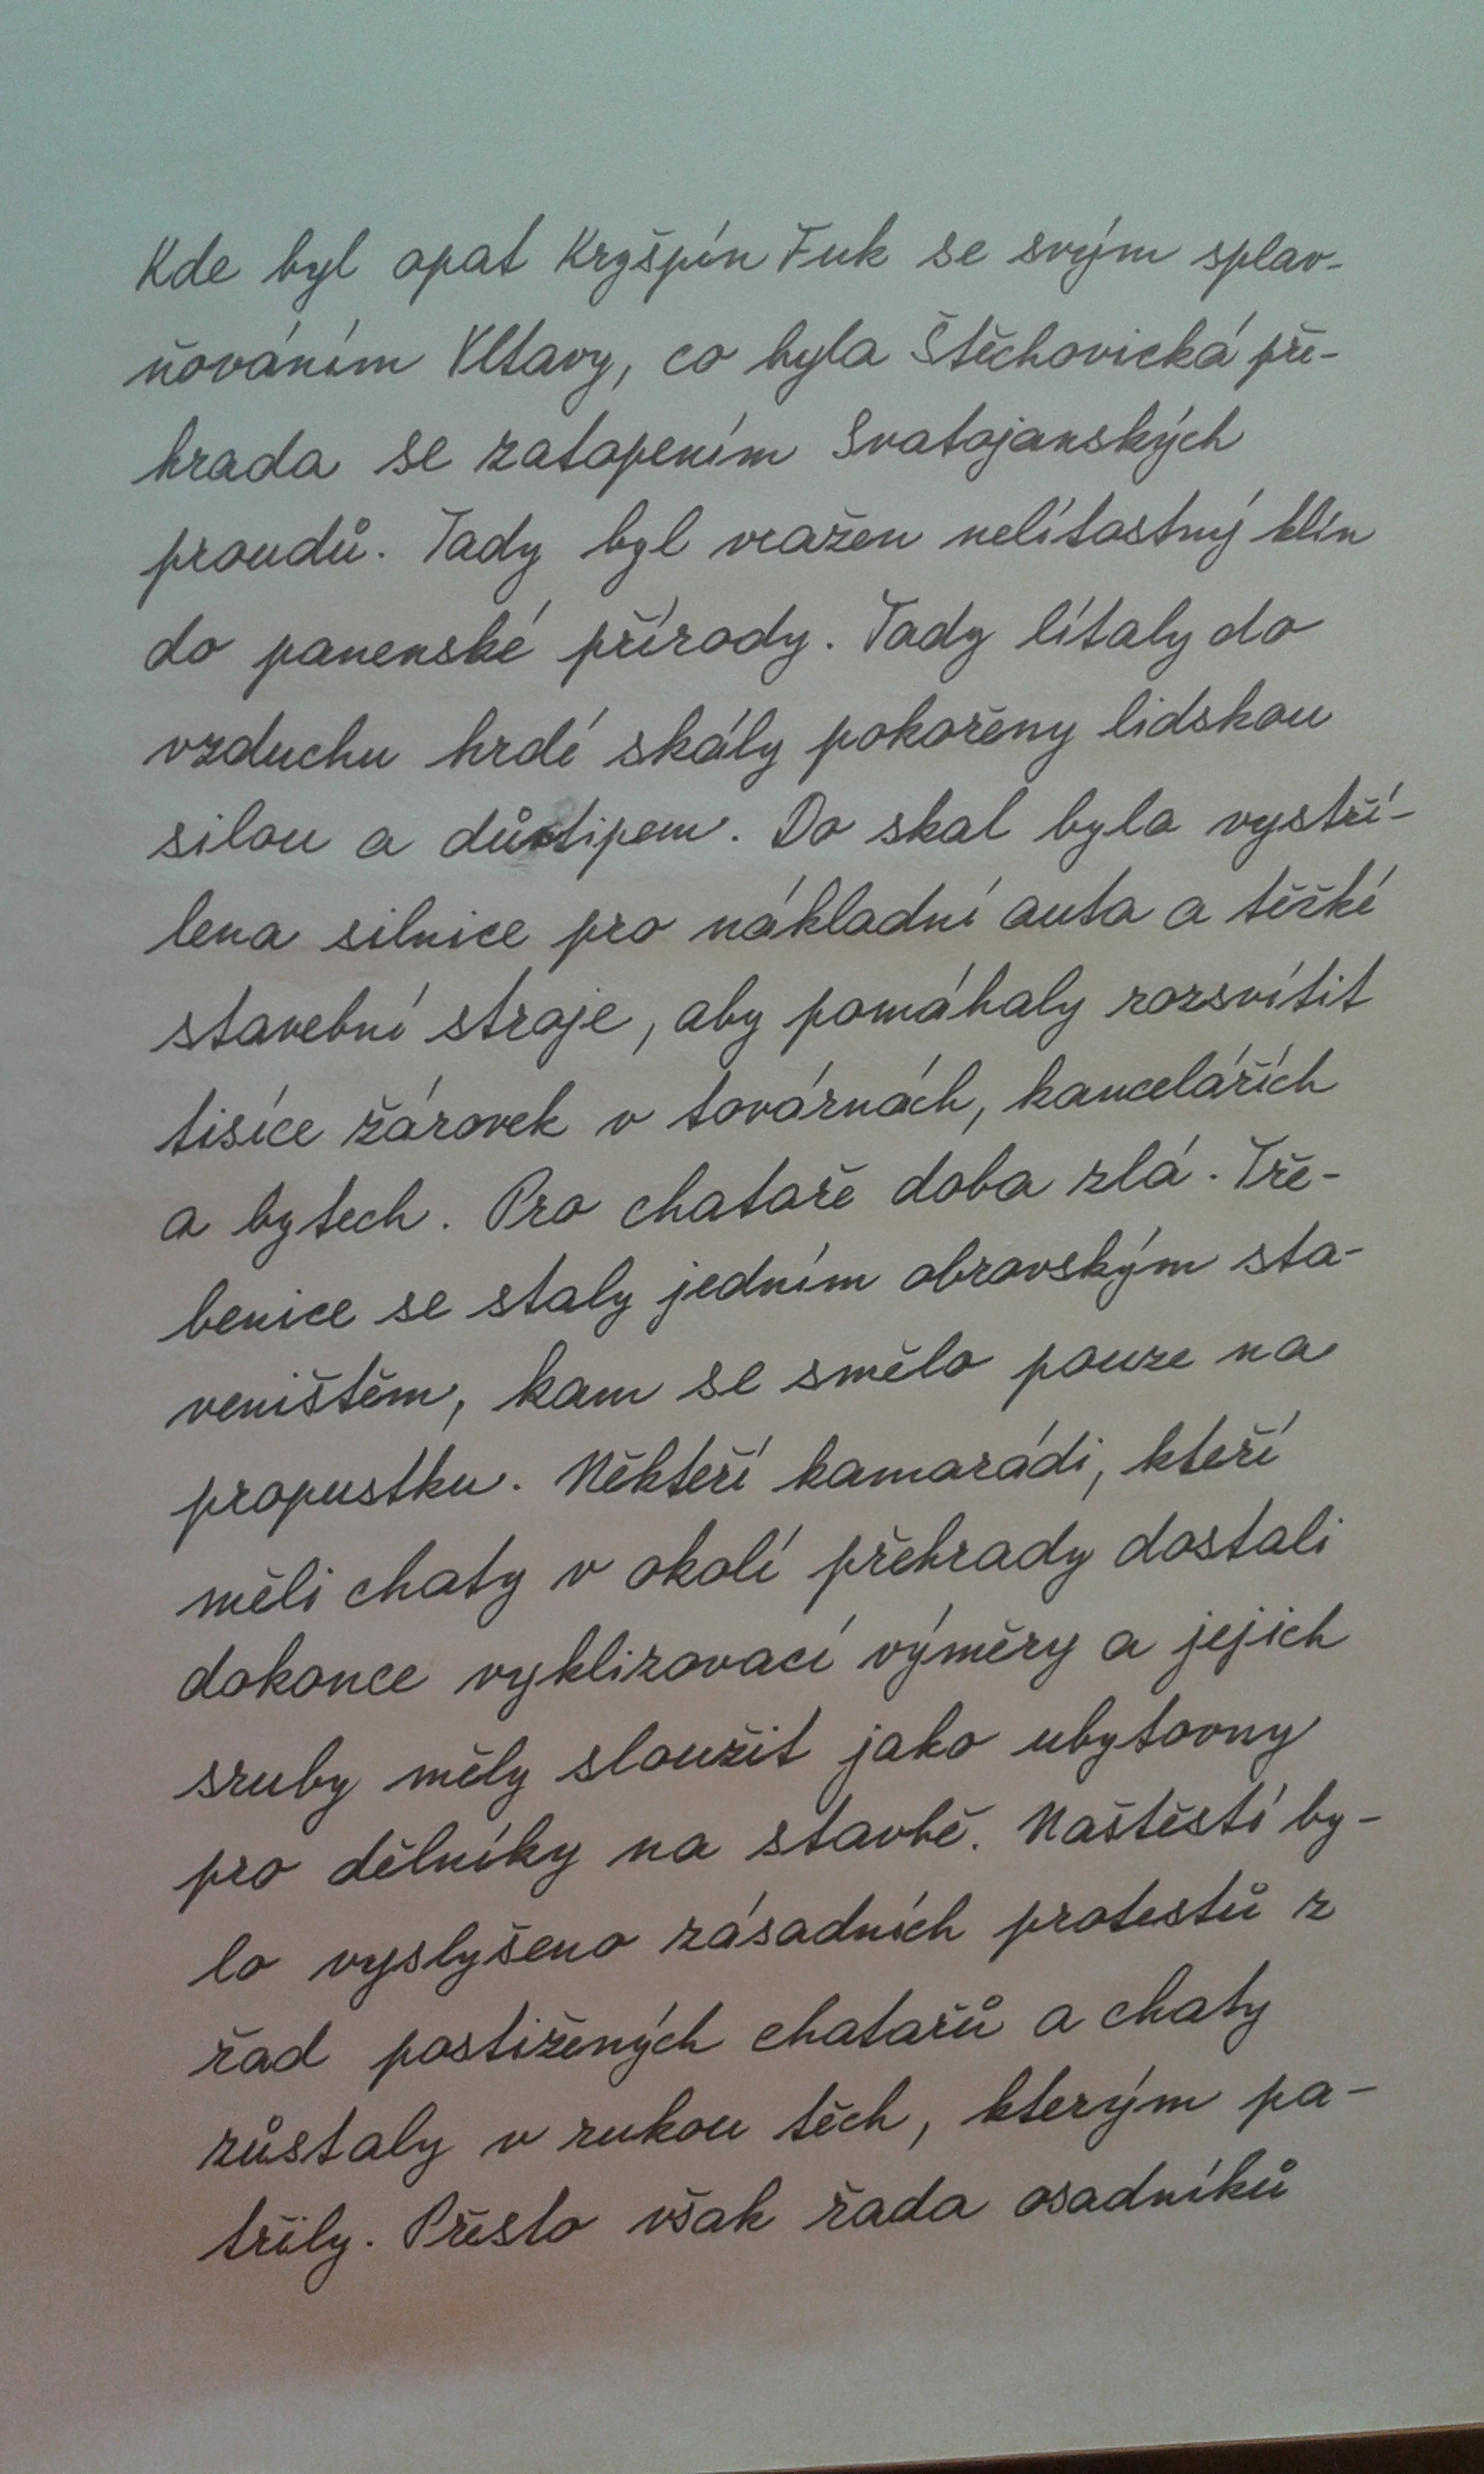 Kde byl opat Kryšpín Fuk se svým splav-
ňováním Vltavy, co byla Štěchovická pře-
hrada se zatopením Svatojanských
proudů. Tady byl vražen nelítostný klín
do panenské přírody. Tady lítaly do
vzduchu hrdé skály pokořeny lidskou
silou a důvtipem. Do skal byla vystří-
lena silnice pro nákladní auta a těžké
stavební stroje, aby pomáhaly rozsvítit
tisíce žárovek v továrnách, kancelářích
a bytech. Pro chataře doba zlá. Tře-
benice se staly jedním obrovským sta-
veništěm, kam se smělo pouze na
propustku. Někteří kamarádi, kteří
měli chaty v okolí přehrady dostali
dokonce vyklizovací výměry a jejich
sruby měly sloužit jako ubytovny
pro dělníky na stavbě. Naštěstí by-
lo vyslyšeno zásadních protestů z
řad postižených chatařů a chaty
zůstaly v rukou těch, kterým pa-
třily. Přesto však řada osadníků